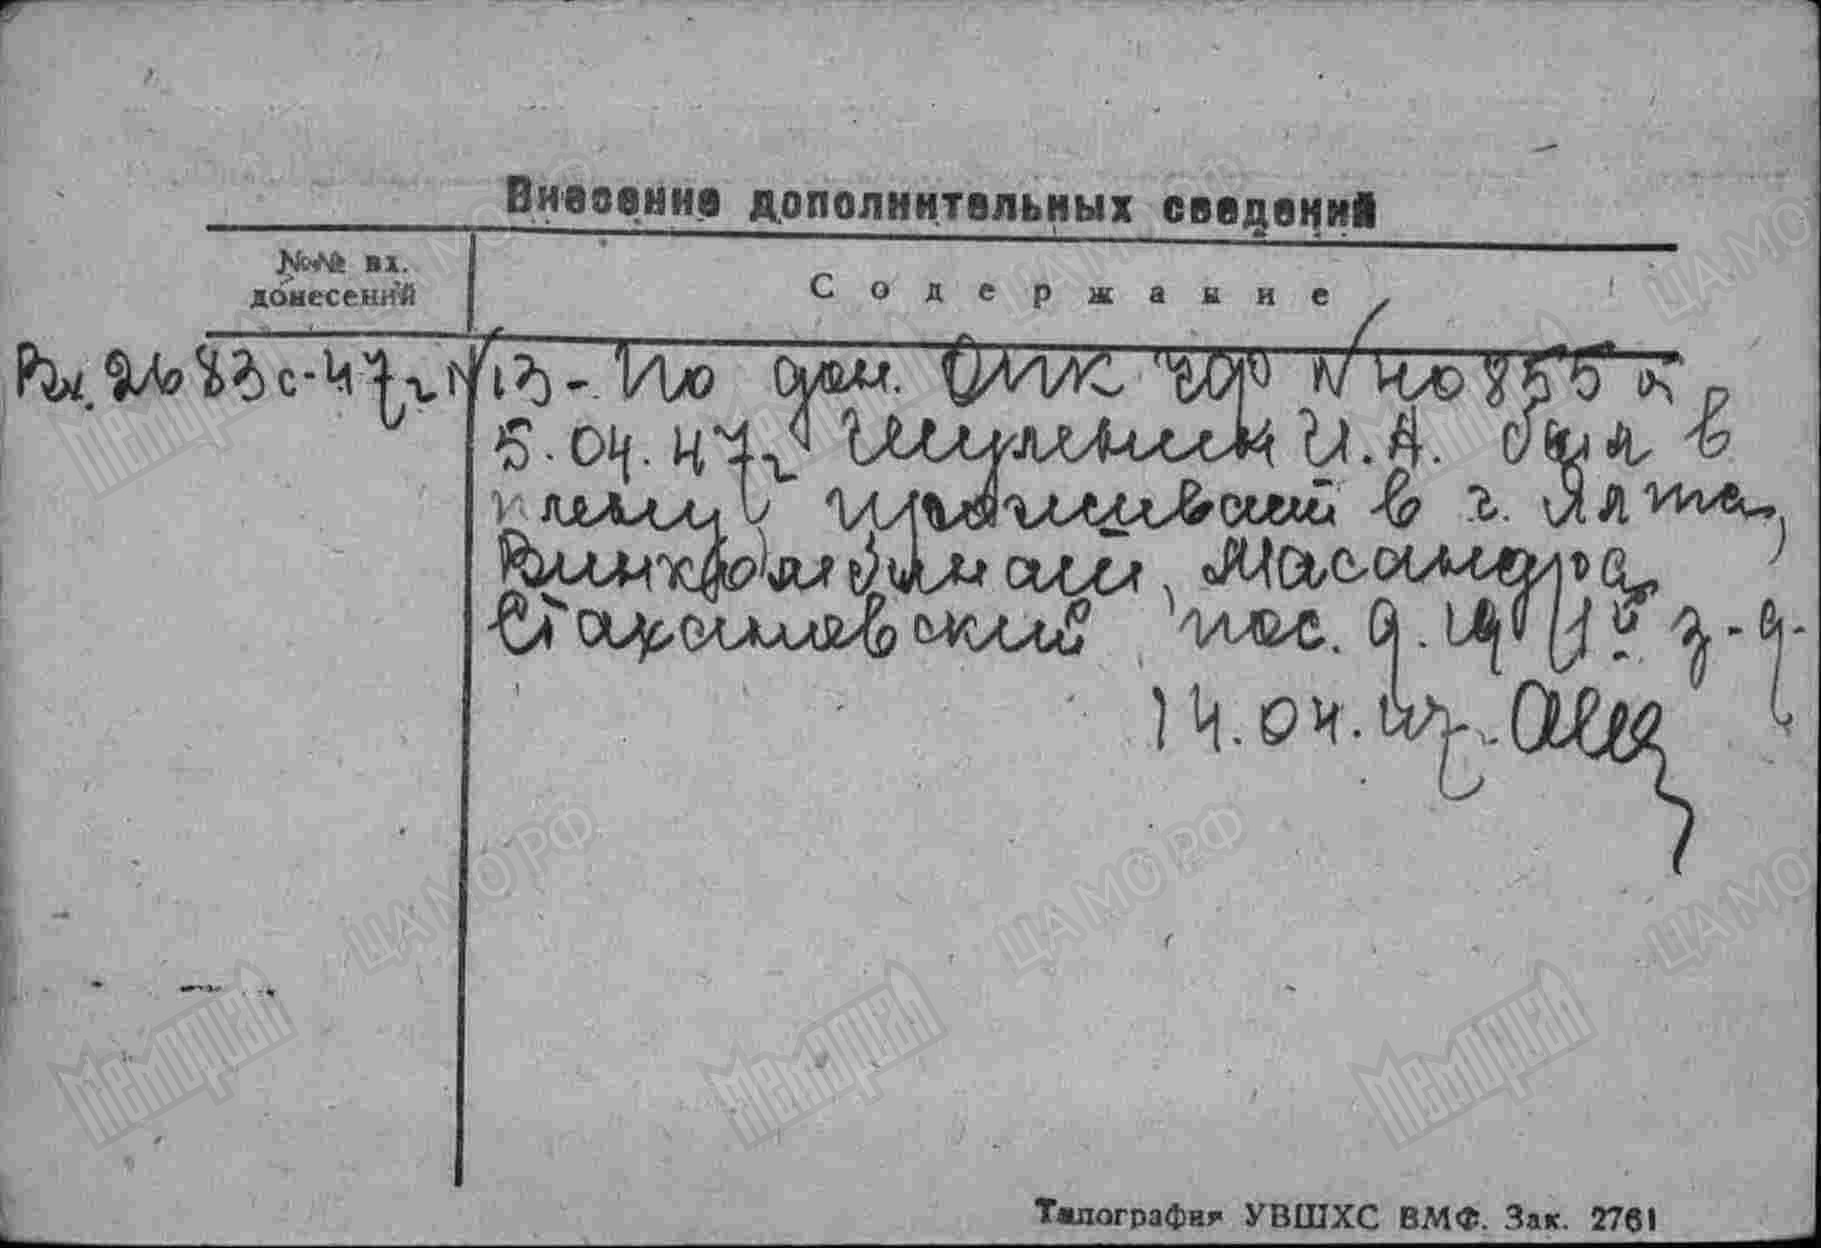 Внесение дополнительных сведений
№№ вх.
донесений
Содержание
Вх. 2683с-47г N13 - По дон. ОПК ЧФ N 40855 от
5.04.47г Шульгин И.А. был в
плену, проживает в г. Ялта,
Винкомбинат, Масандра,
Стахановский пос. д. 19
14.04.47г.
Типография УВШХС ВМФ. Зак. 2761
Мемориал
ЦАМО РФ